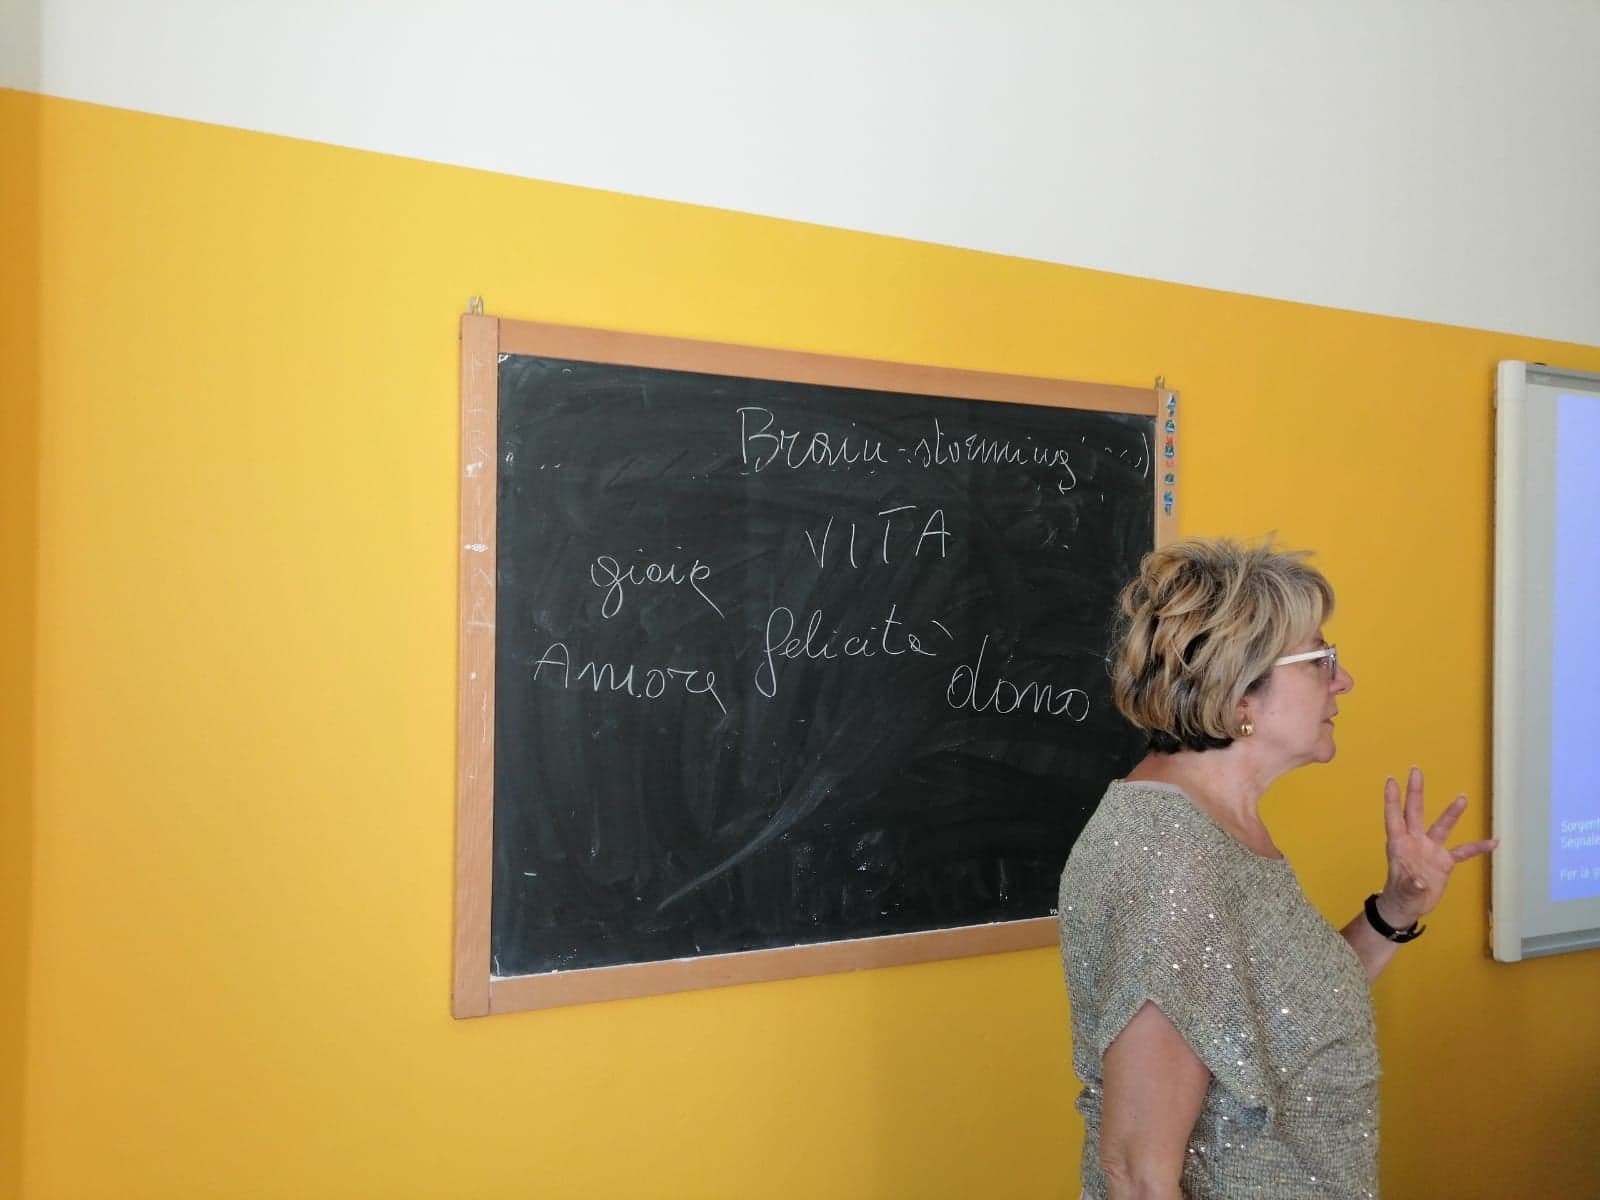 Brain-storming
VITA
gioia
felicità
Amore
dono
Sorgent
Segnale
Per la